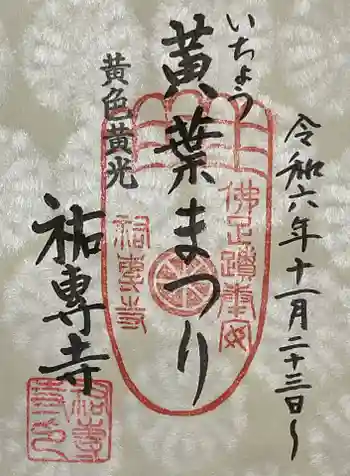 令和六年十一月二十三日〜
いちょう
黄葉まつり
黄色黄光
祐専寺
祐専寺